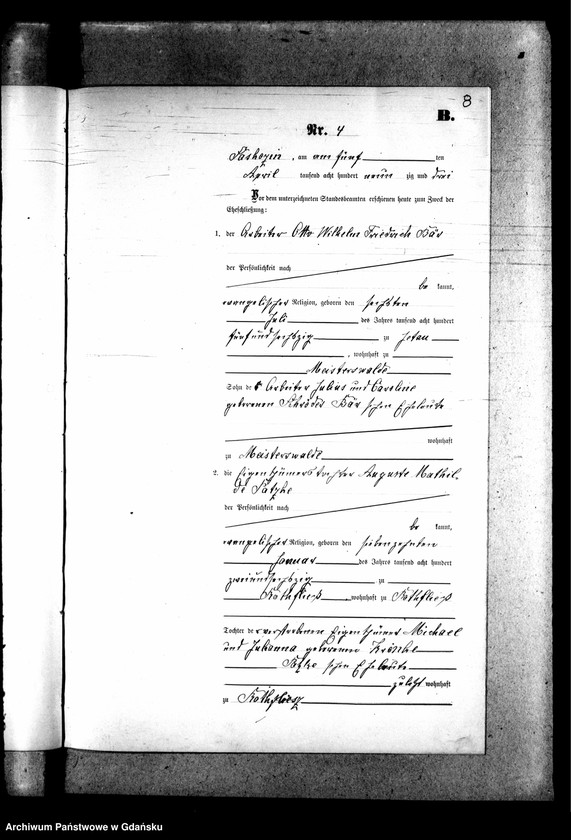 8
B.
Nr. 4
am fünf ten
April tausend acht hundert neun zig und drei
Vor dem unterzeichneten Standesbeamten erschienen heute zum Zweck der
Eheschließung:
1. der Arbeiter Otto Wilhelm Friedrich Bär
der Persönlichkeit nach
be kannt,
evangelischer Religion, geboren den sechsten
Juli des Jahres tausend acht hundert
fünfundsechszig zu
, wohnhaft zu
Meisterswalde
Sohn der Arbeiter Julius und Caroline
geborenen Schröder Bär schen Eheleute
wohnhaft
zu Meisterswalde
2. die Eigenthümerstochter Auguste Mathil-
de
der Persönlichkeit nach
be kannt,
evangelischer Religion, geboren den siebenzehnten
Januar des Jahres tausend acht hundert
zweiundsechszig zu
, wohnhaft zu
Tochter der verstorbenen Eigenthümer Michael
und Johanna geborenen
schen Eheleute
zuletzt wohnhaft
zu
Archiwum Państwowe w Gdańsku